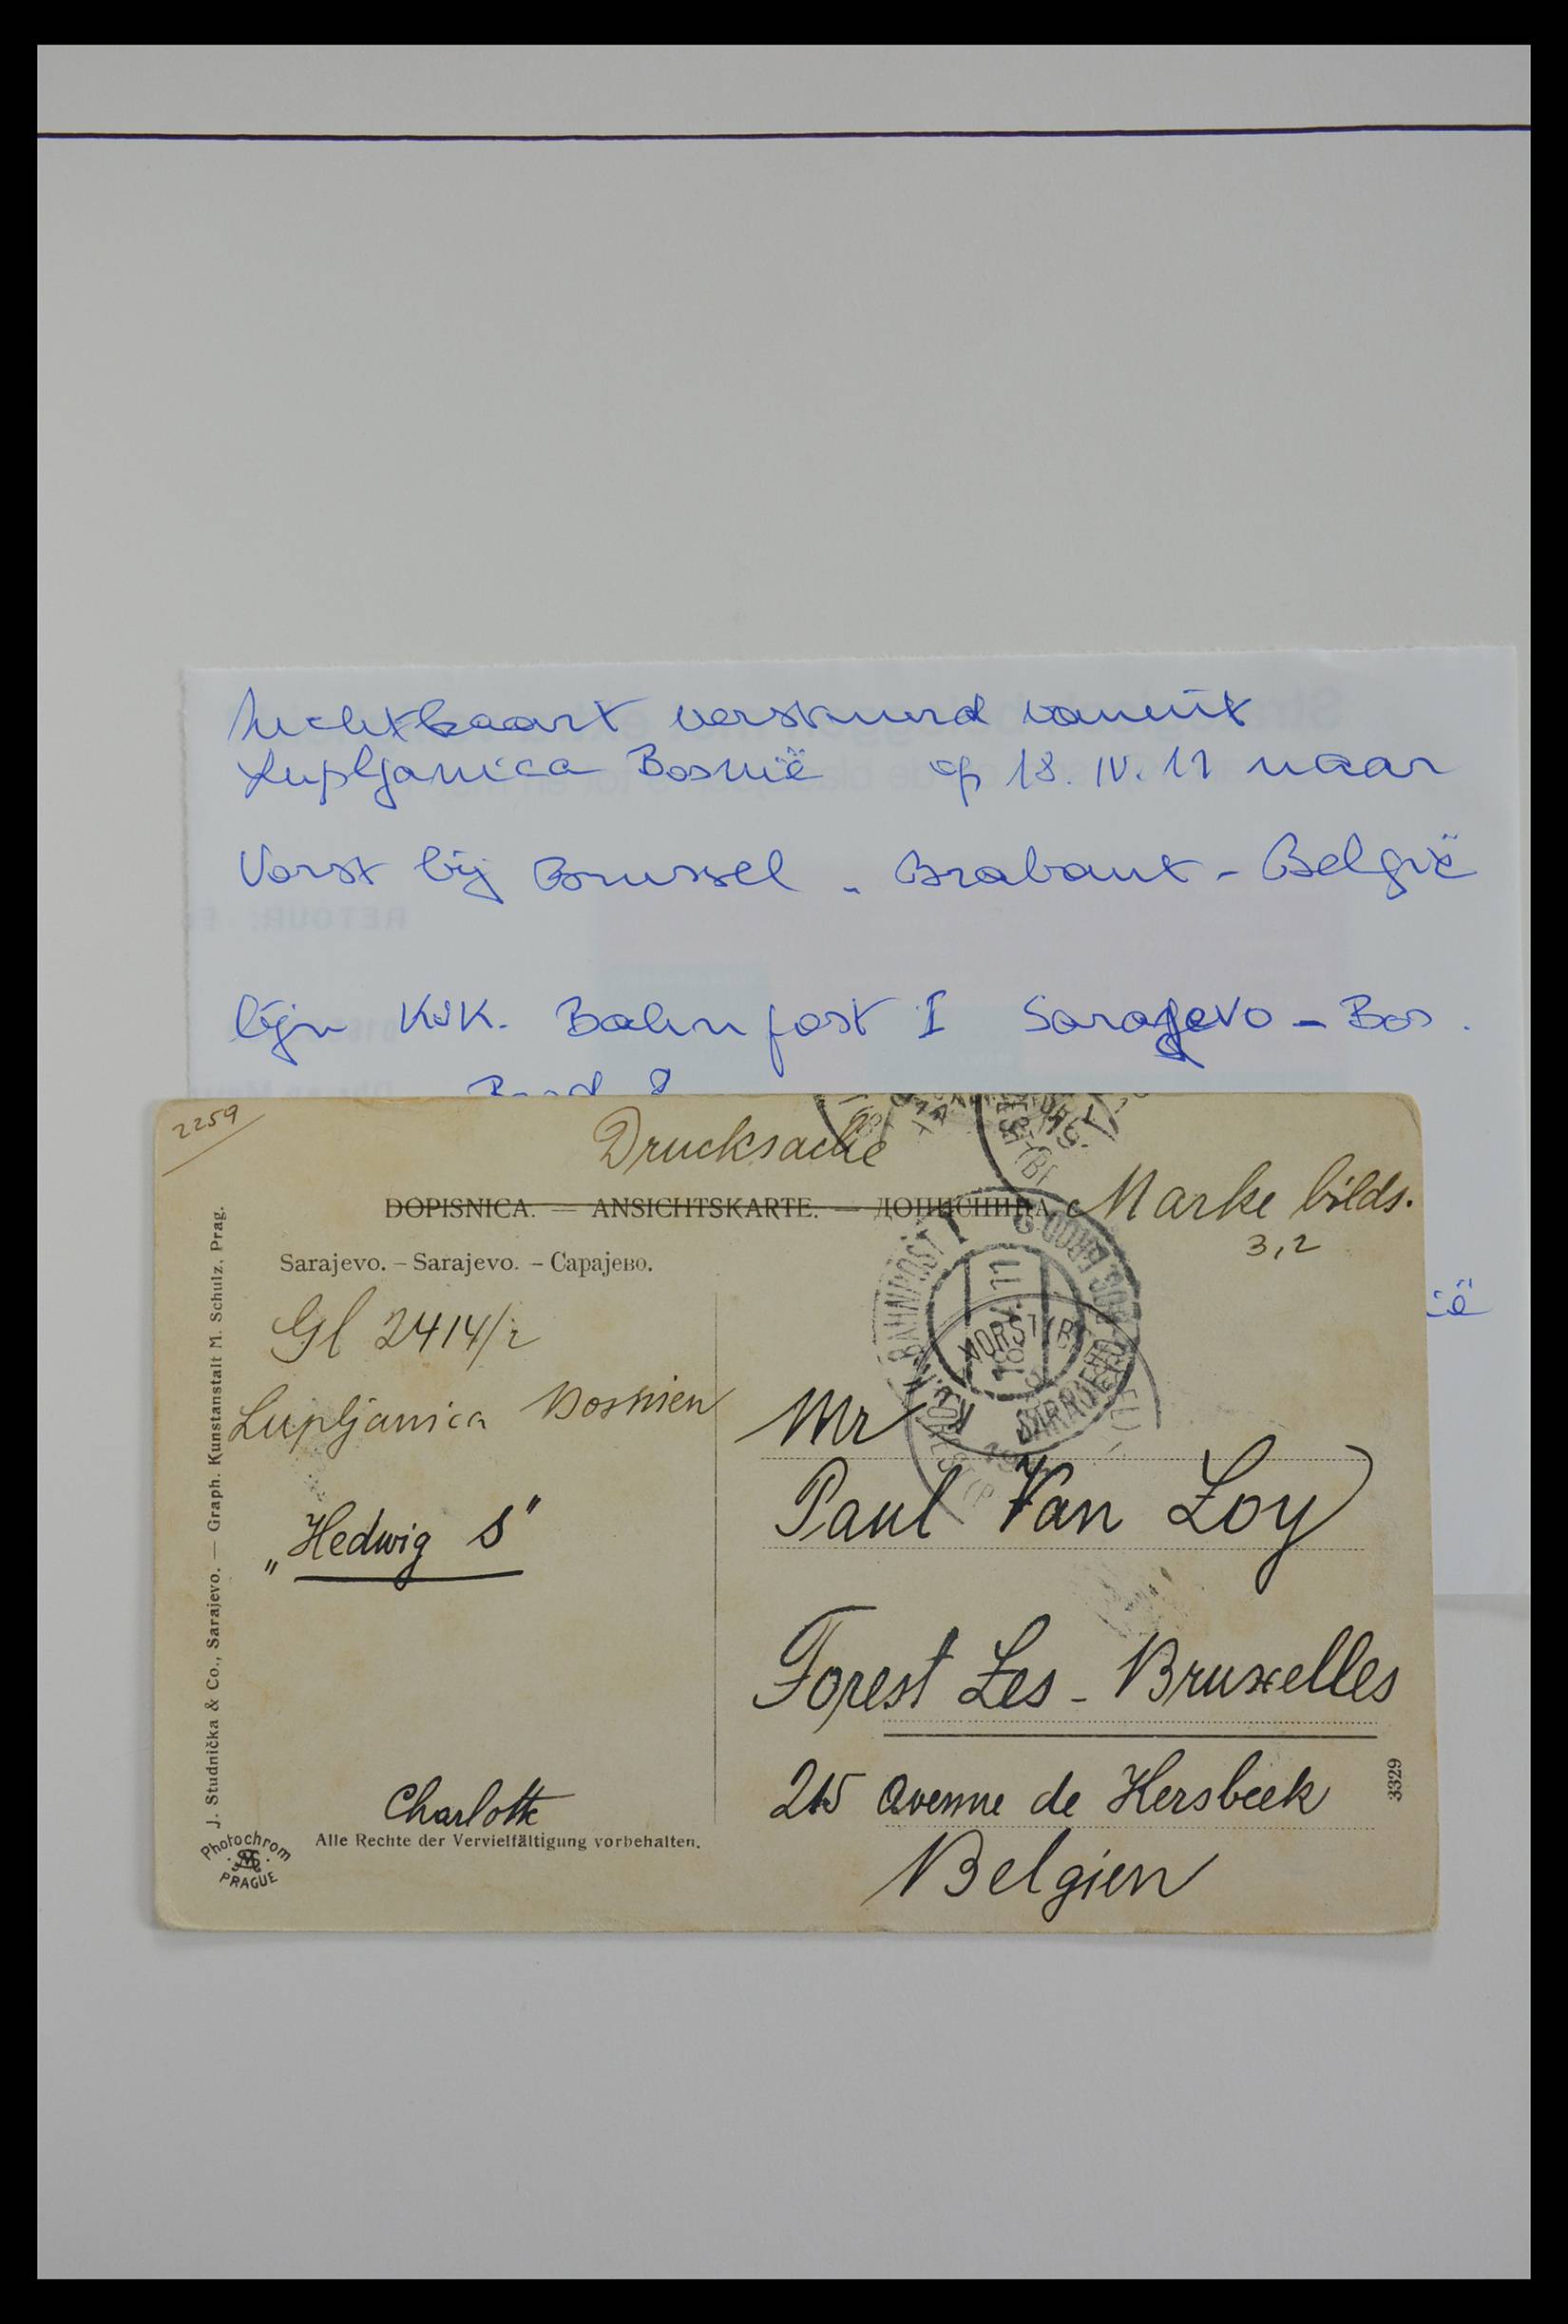 luchtkaart verstuurd vanuit
Lupljanica Bosnië op 18. IV. 11 naar
Vorst bij Brussel - Brabant - België
lijn K.u.K. Bahnpost I Sarajevo - Bos.
2259
Drucksache
DOPISNICA. — ANSICHTSKARTE. — ДОПИСНИЦА
Marke bilds.
3,2
Sarajevo. – Sarajevo. – Сарајево.
Gl 2414/2
Lupljanica Bosnien
„Hedwig S"
Charlotte
Alle Rechte der Vervielfältigung vorbehalten.
J. Studnička & Co., Sarajevo. — Graph. Kunstanstalt M. Schulz, Prag.
Photochrom
PRAGUE
BAHNPOST I
SARAJEVO
VORST (B
Mr
Paul Van Loy
Forest Les - Bruxelles
215 avenue de Kersbeek
Belgien
3329